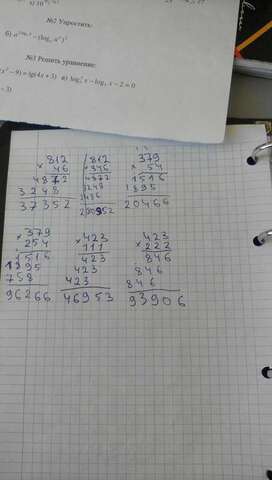 з) 10
№2 Упростить:
№3 Решить уравнение:
−9) = lg(4x + 3) в) log x − log x − 2 = 0
− 3)
812
× 46
4872
3248
37352
812
× 346
4872
3248
2436
280952
379
× 54
1516
1895
20466
379
× 254
1516
1895
758
96266
423
× 111
423
423
423
46953
423
× 222
846
846
846
93906